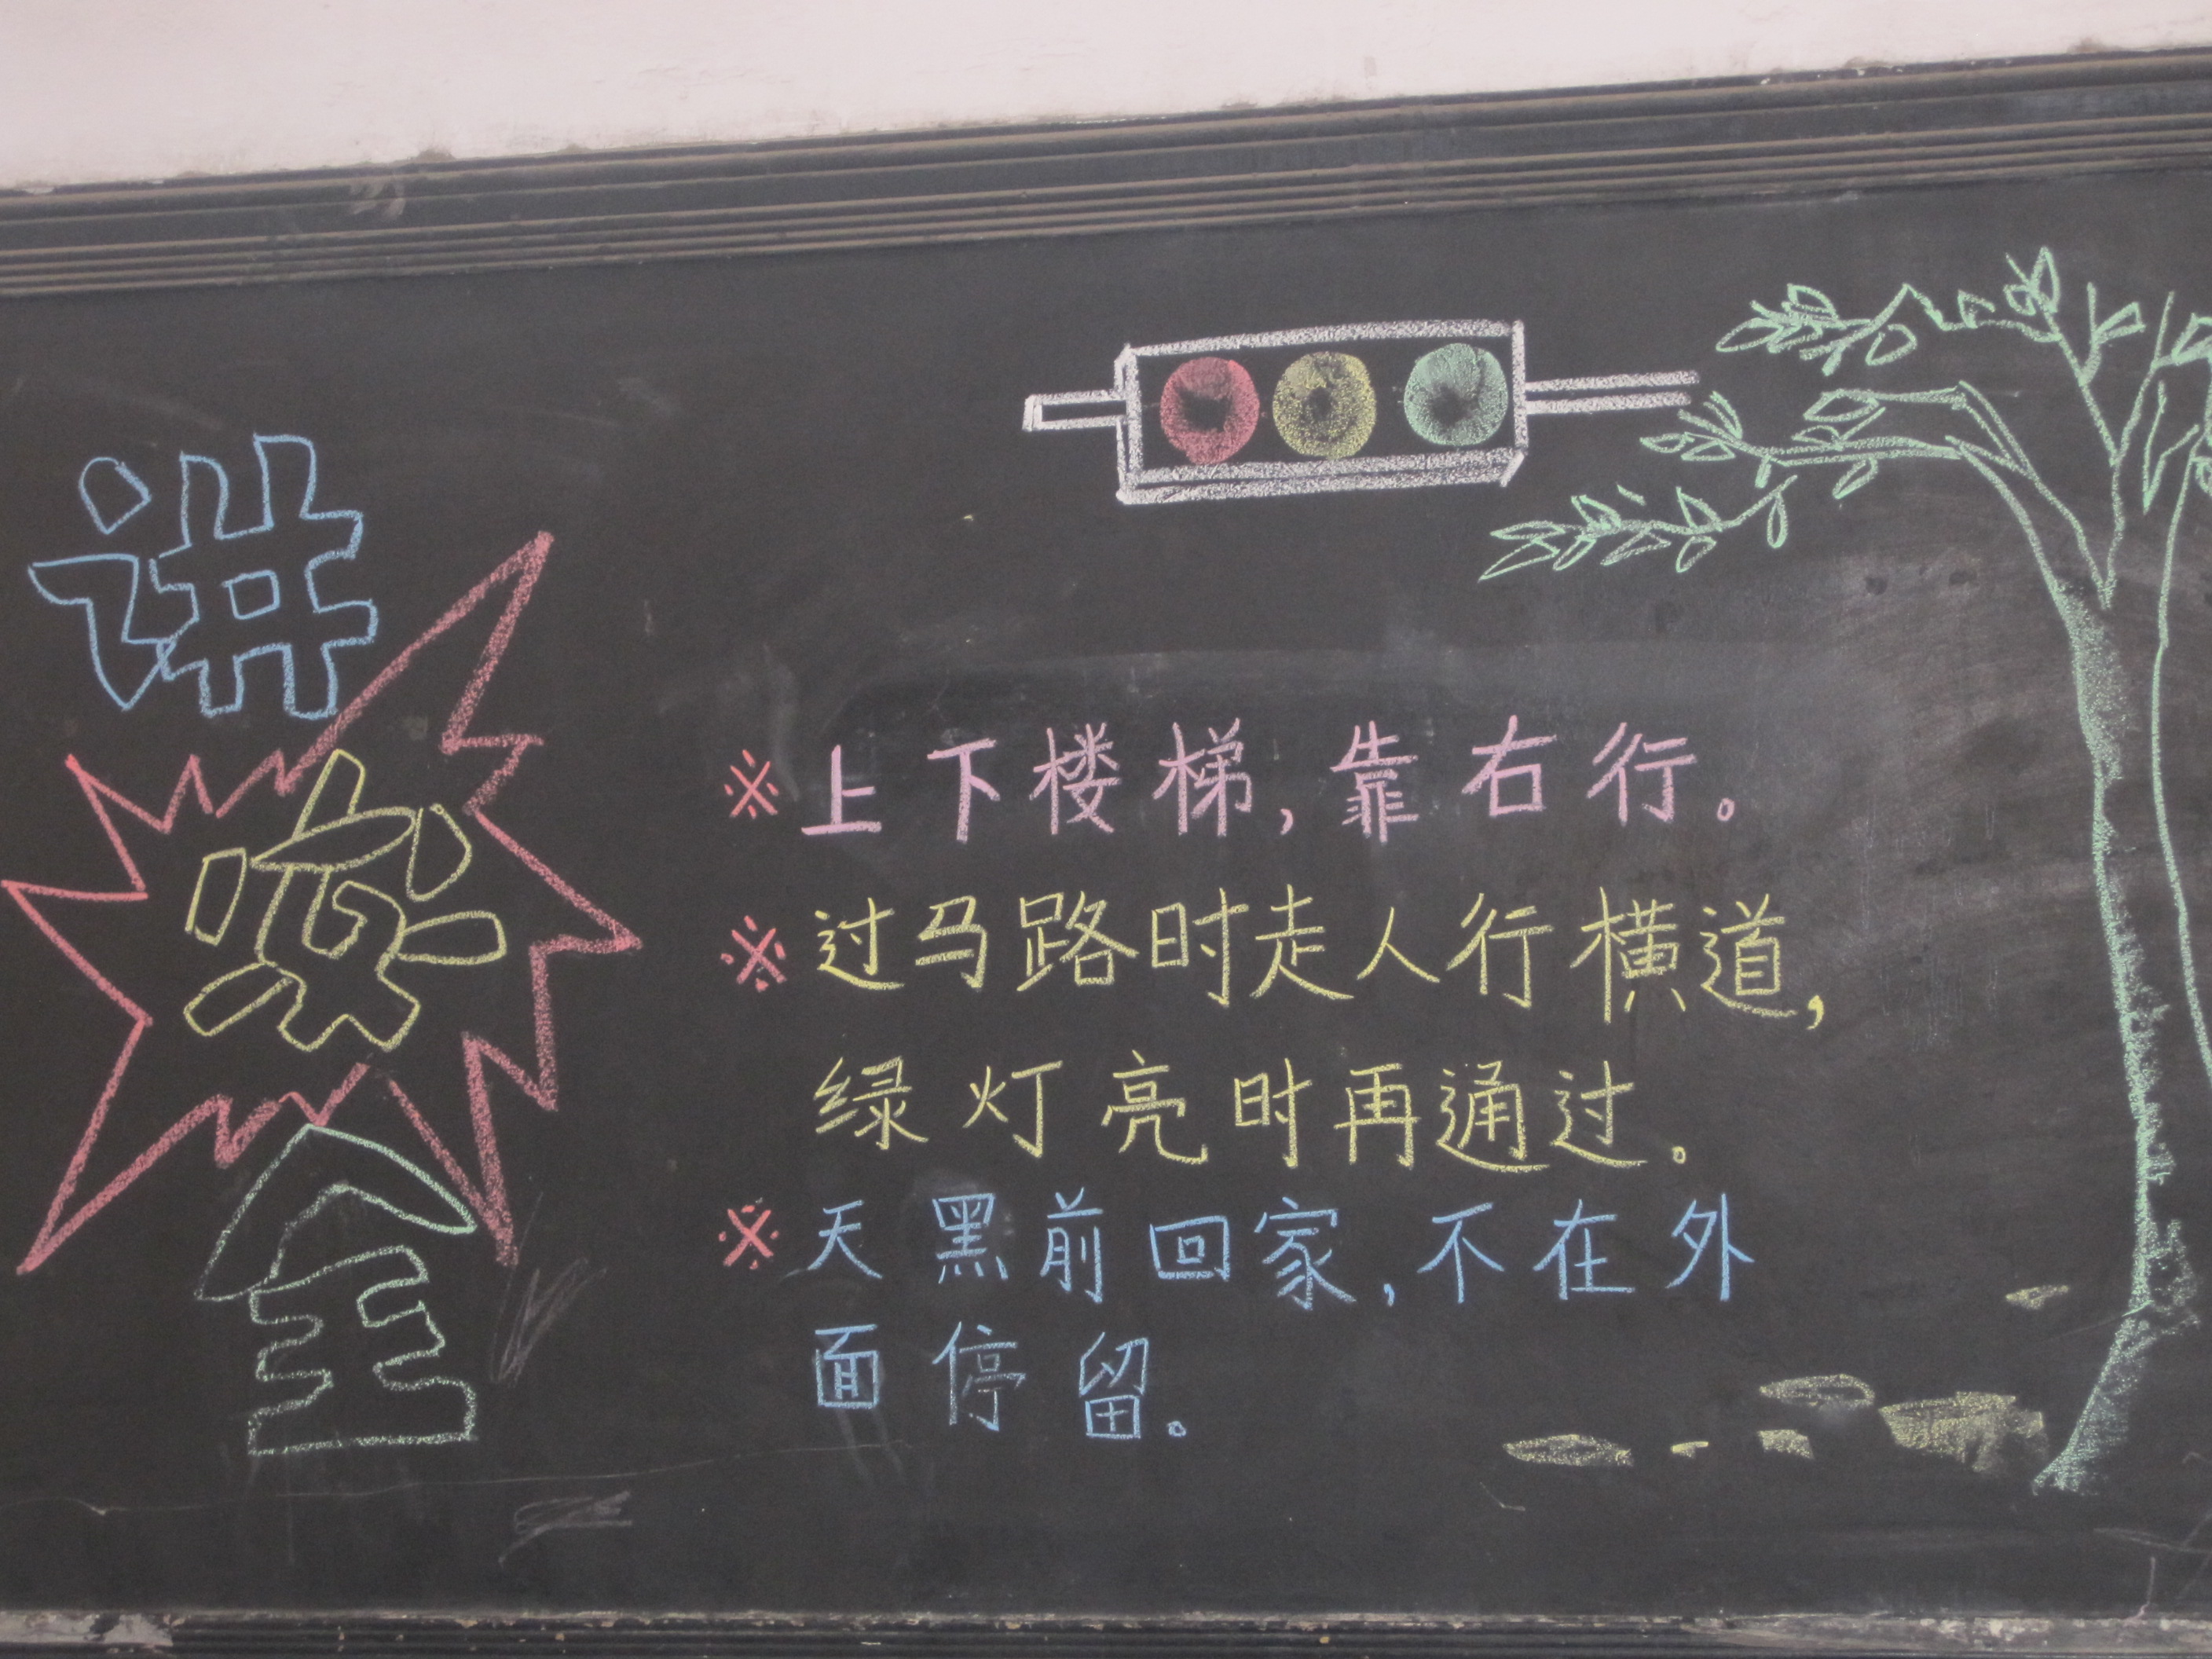 讲
安
全
※上下楼梯，靠右行。
※过马路时走人行横道，
绿灯亮时再通过。
※天黑前回家，不在外
面停留。